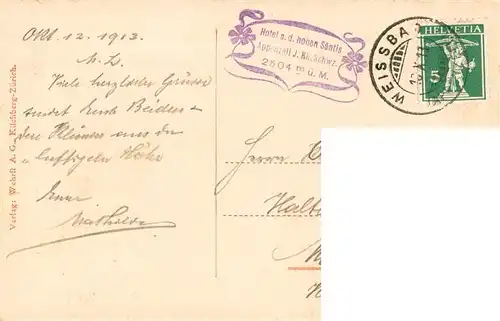 Okt. 12. 1913.
M. L.
Viele herzliche Grüsse
sendet Euch Beiden
aus der
luftigen Höhe
Eure
Mathilde
Verlag: Wehrli A. G., Kilchberg-Zürich.
Hotel a. d. hohen Säntis
Appenzell J. Rh. Schwz.
2504 m ü. M.
WEISSBA
HELVETIA
5
Herrn
Halt